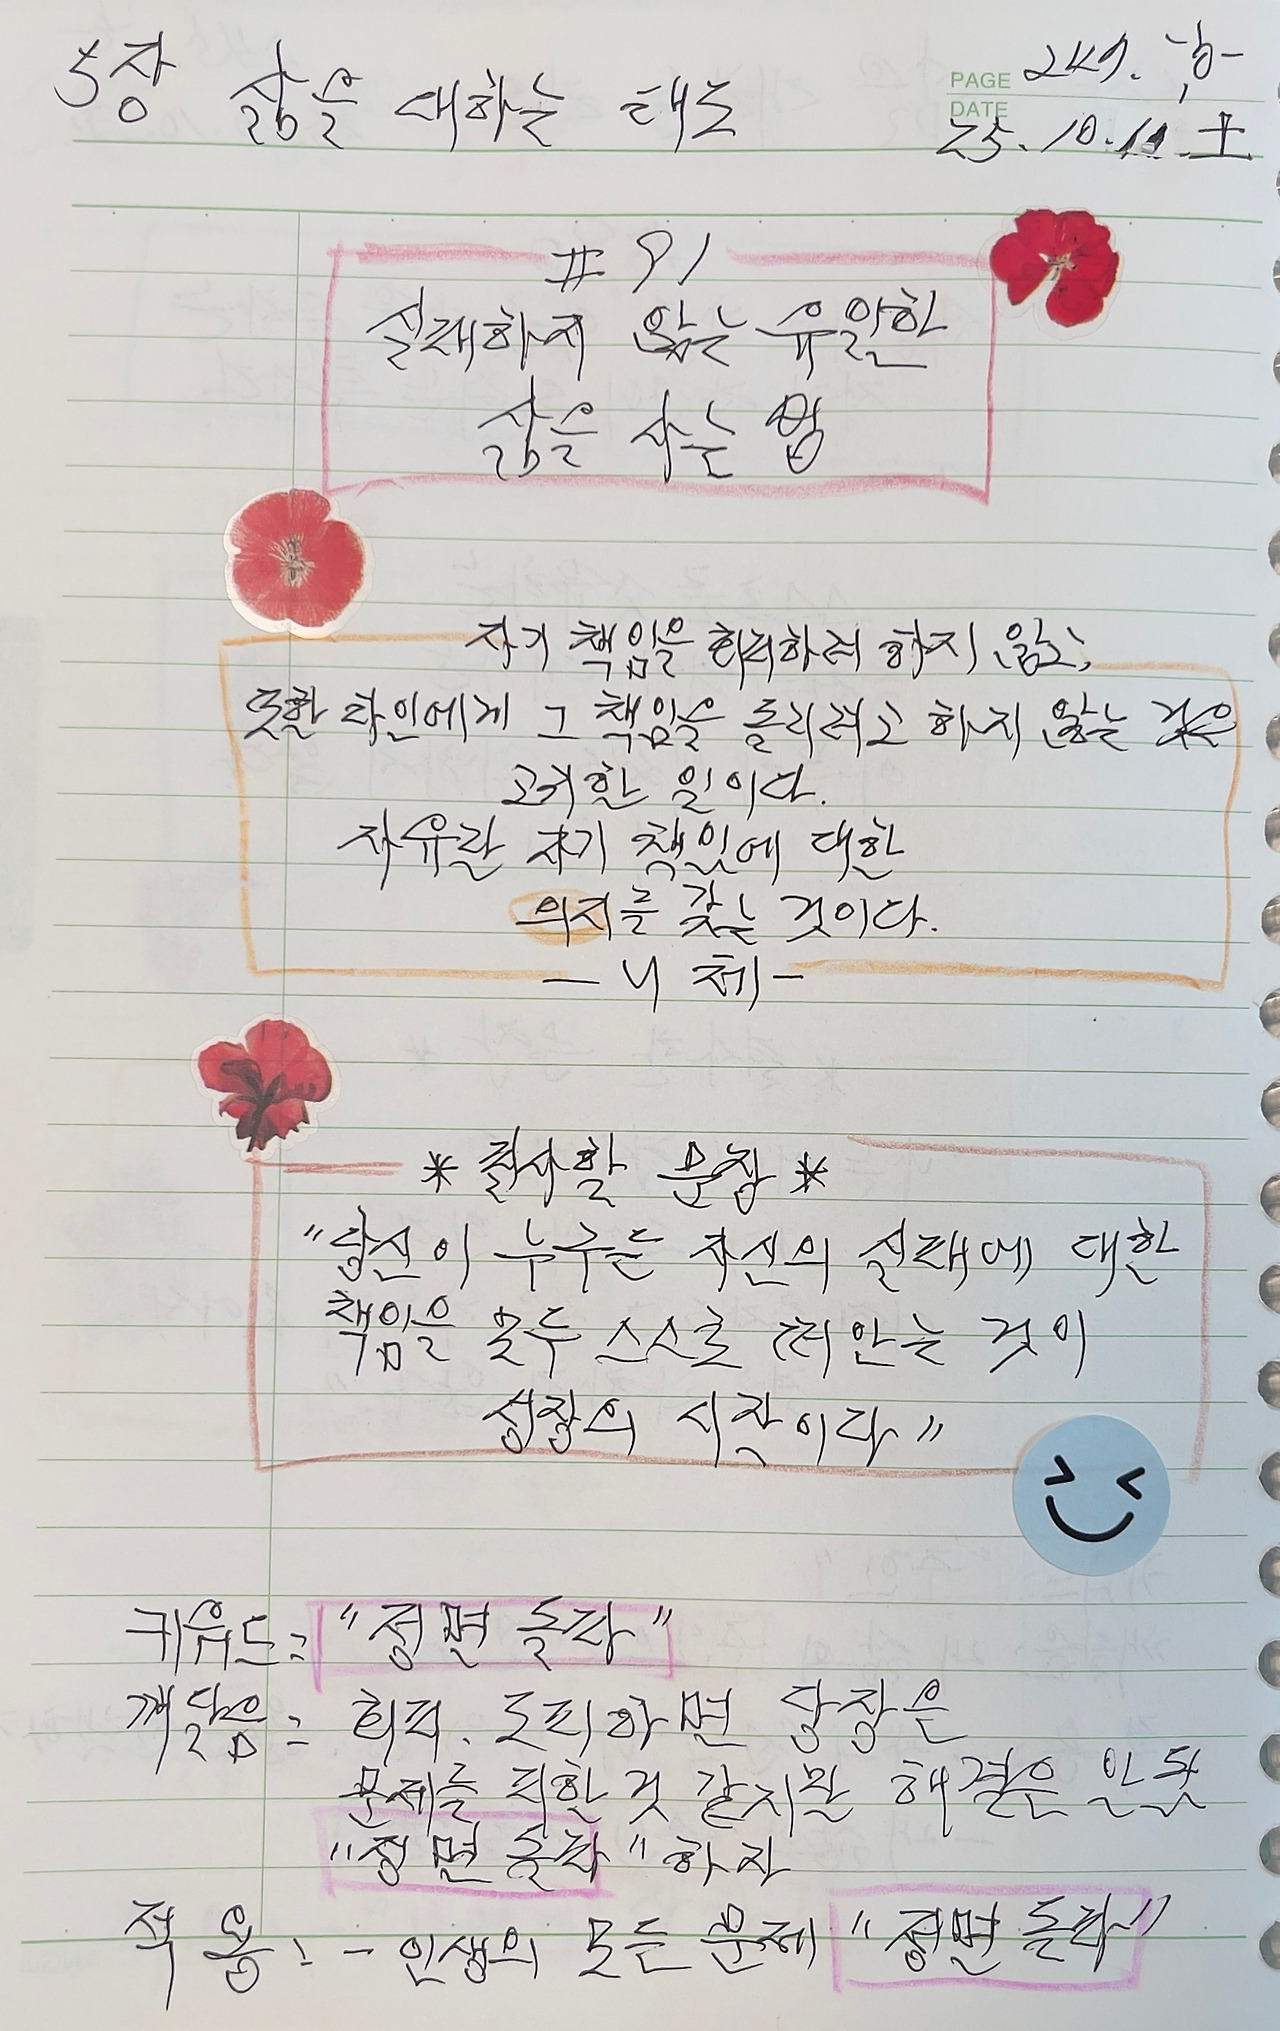 5장 삶을 대하는 태도
PAGE
DATE 25.10.11.土
#91
실패하지 않는 유일한
삶을 사는 법
자기 책임을 회피하려 하지 않고,
또한 타인에게 그 책임을 돌리려고 하지 않는 것은
고귀한 일이다.
자유란 자기 책임에 대한
의지를 갖는 것이다.
- 니체 -
* 필사할 문장 *
"당신이 누구든 자신의 실패에 대한
책임을 모두 스스로 떠안는 것이
성장의 시작이다"
키워드: "정면 돌파"
깨달음: 회피. 도피하면 당장은
문제를 피한 것 같지만 해결은 안 됨
"정면 돌파"하자
적용: - 인생의 모든 문제 "정면 돌파"